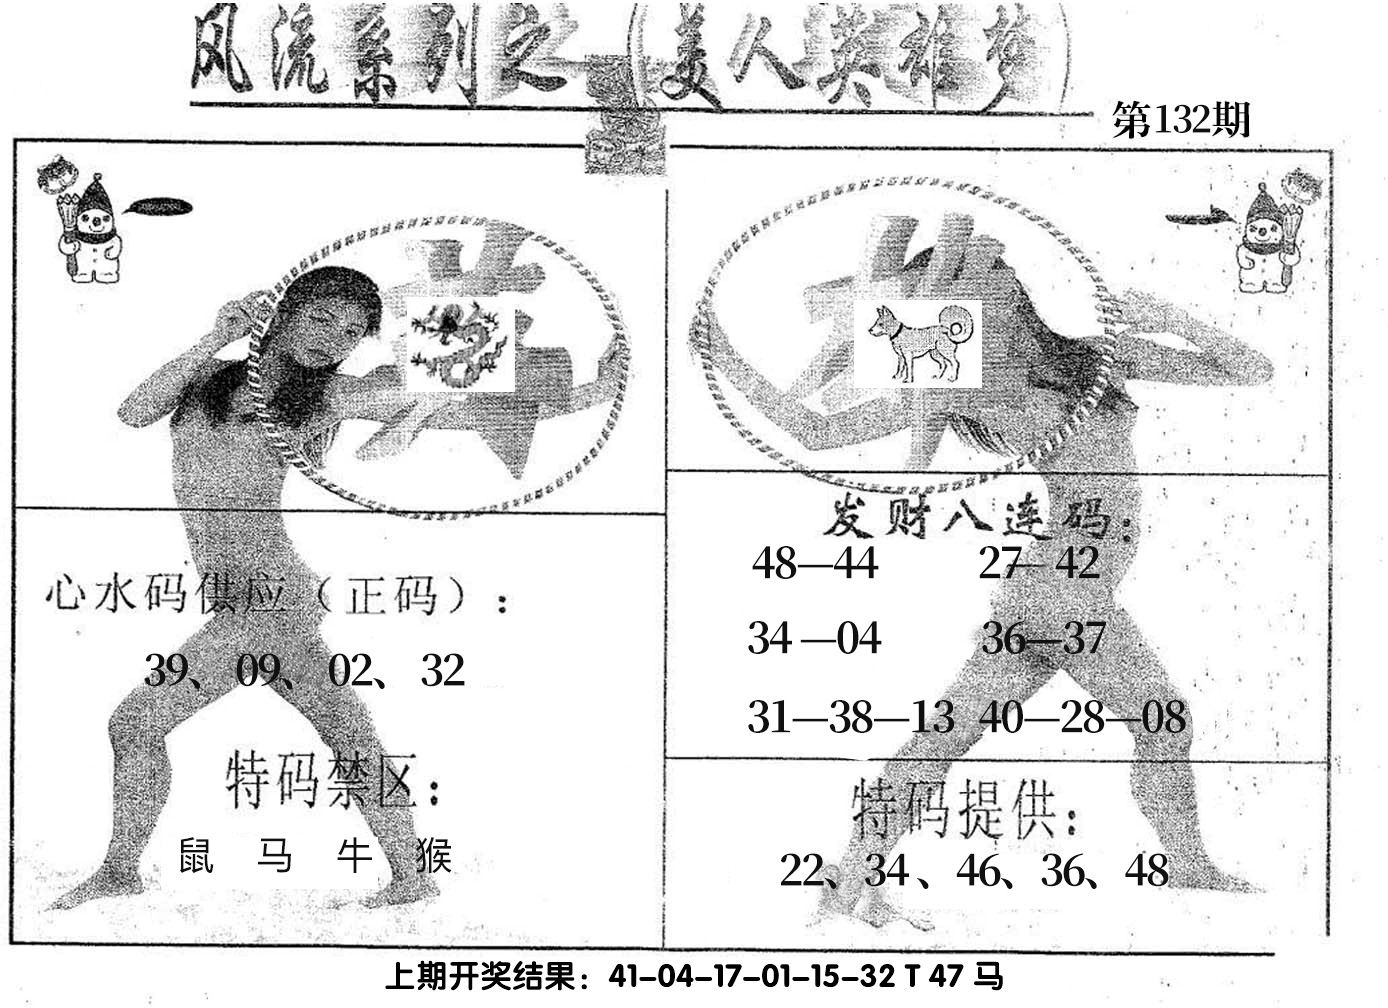 风流系列之 美人英雄梦
第132期
心水码供应（正码）：
39、09、02、32
特码禁区：
鼠 马 牛 猴
发财八连码：
48—44 27—42
34—04 36—37
31—38—13 40—28—08
特码提供：
22、34、46、36、48
上期开奖结果：41-04-17-01-15-32 T 47 马